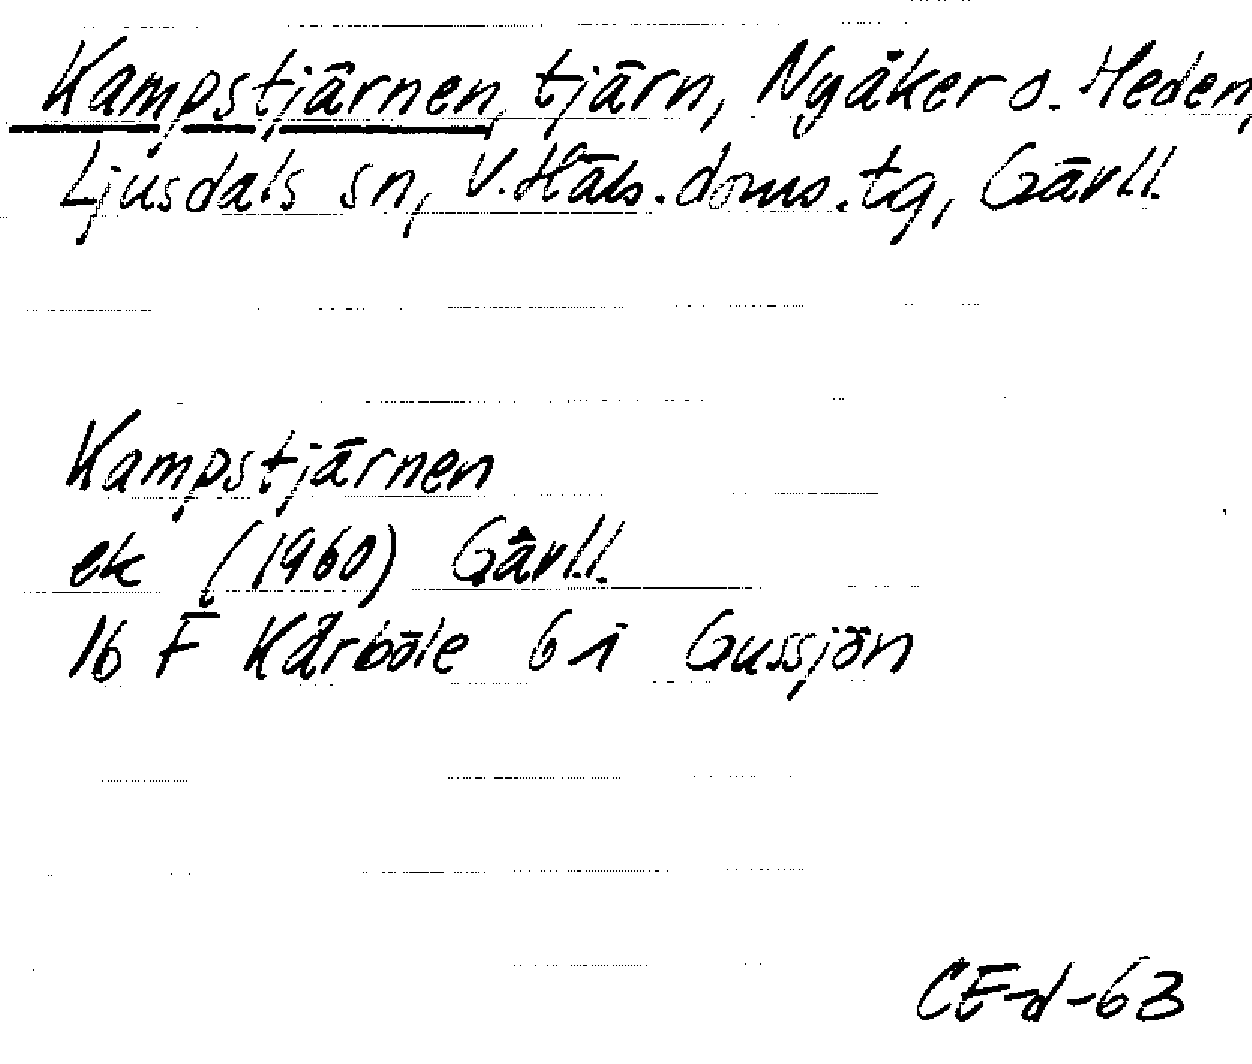 Kampstjärnen, tjärn, Nyåker o. Heden,
Ljusdals sn, V. Häls. doms. tg, Gävl.l.
Kampstjärnen
ek (1960) Gävl.l.
16 F Kårböle 6 i Gussjön
CE-d-63